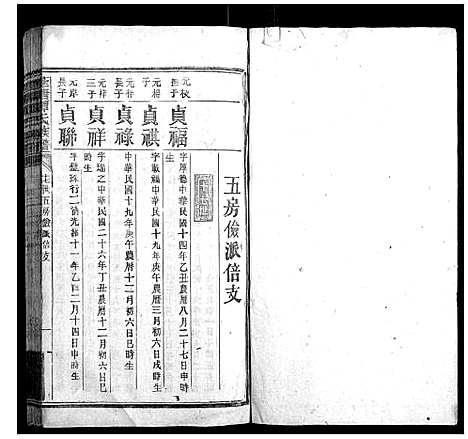 五房儉派倍支
元校
撫子
貞福
字厚德中華民國十四年乙丑農曆八月二十七日申時
生
元相
子
貞祺
字載福中華民國十九年庚午農曆三月初六日戌時生
元相
長子
貞祿
中華民國十九年庚午農曆十二月初六日巳時生
元梓
三子
貞祥
字瑞之中華民國二十六年丁丑農曆十二月初六日巳
時生
元岸
長子
貞聯
字璧珠行二清光緒十一年乙酉二月十四日申時生
五房儉派倍支